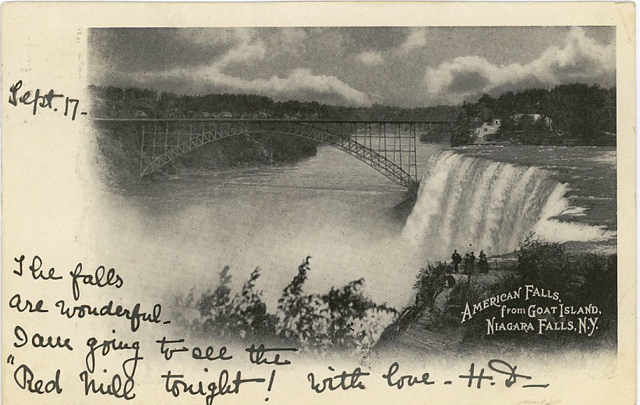 Sept. 17-
AMERICAN FALLS,
from GOAT ISLAND,
NIAGARA FALLS, N.Y.
The falls
are wonderful-
I am going to see the
"Red Mill tonight! With love - H.D-